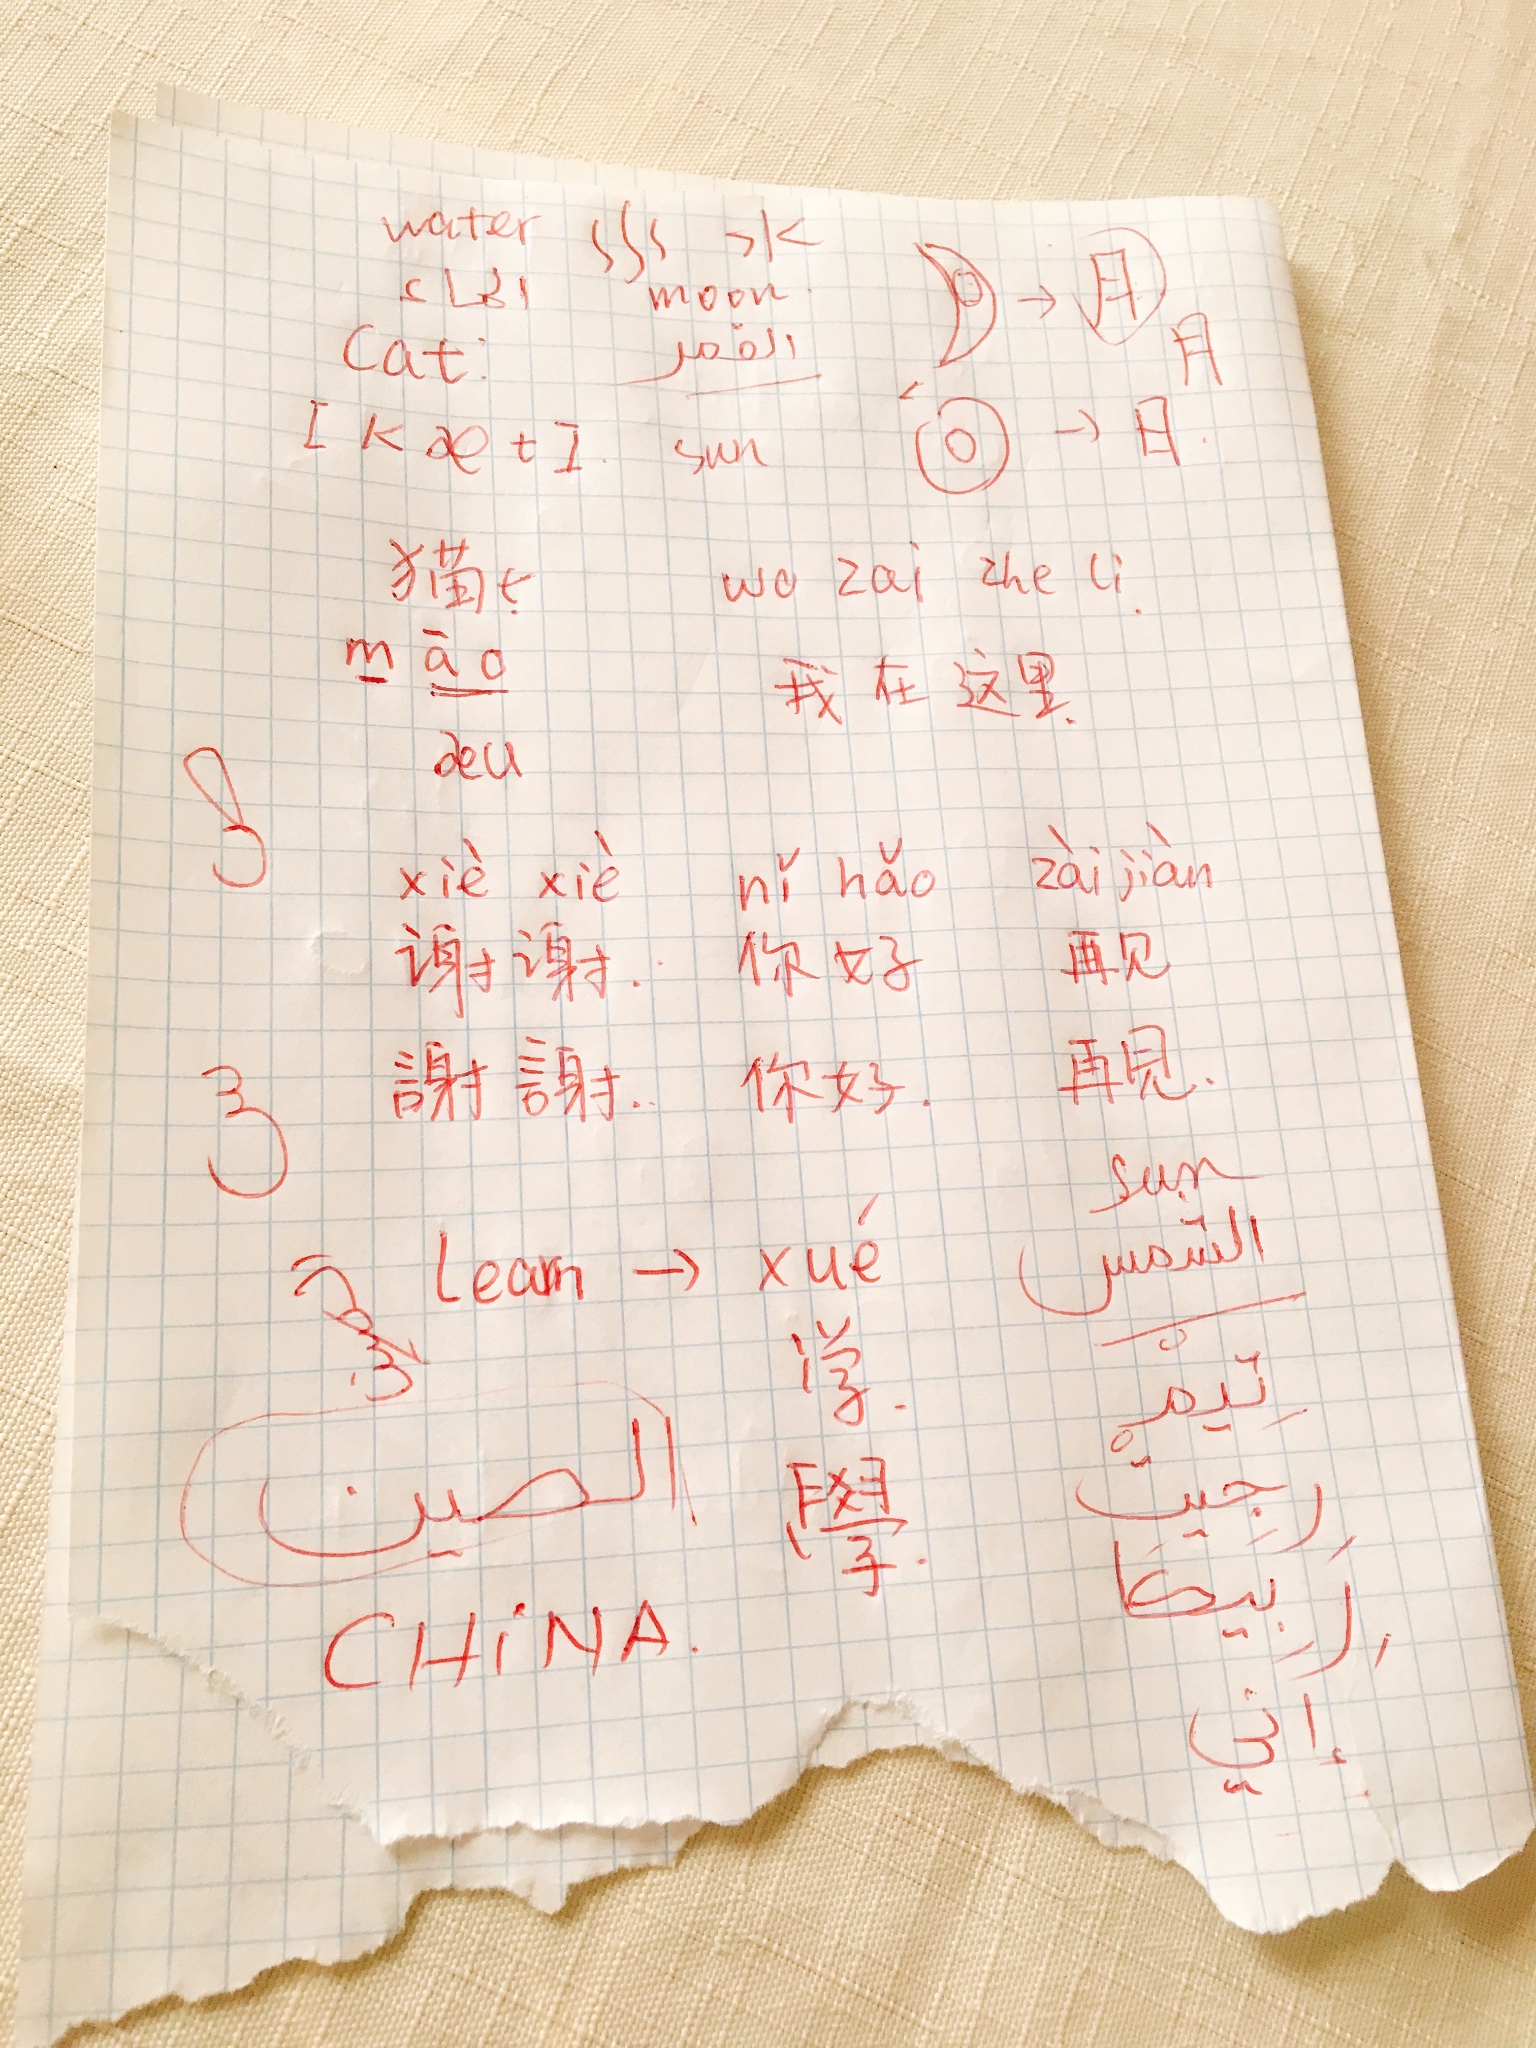 water 水
الماء moon 月
Cat: القمر 月
I K æ t I. sun 日.
猫 wo zai zhe li.
māo 我在这里.
æu
xiè xiè nǐ hǎo zàijiàn
谢谢. 你好 再见
謝謝. 你好. 再見.
sun
Learn → xué الشمس
学.
الصين 學.
CHiNA.
إني